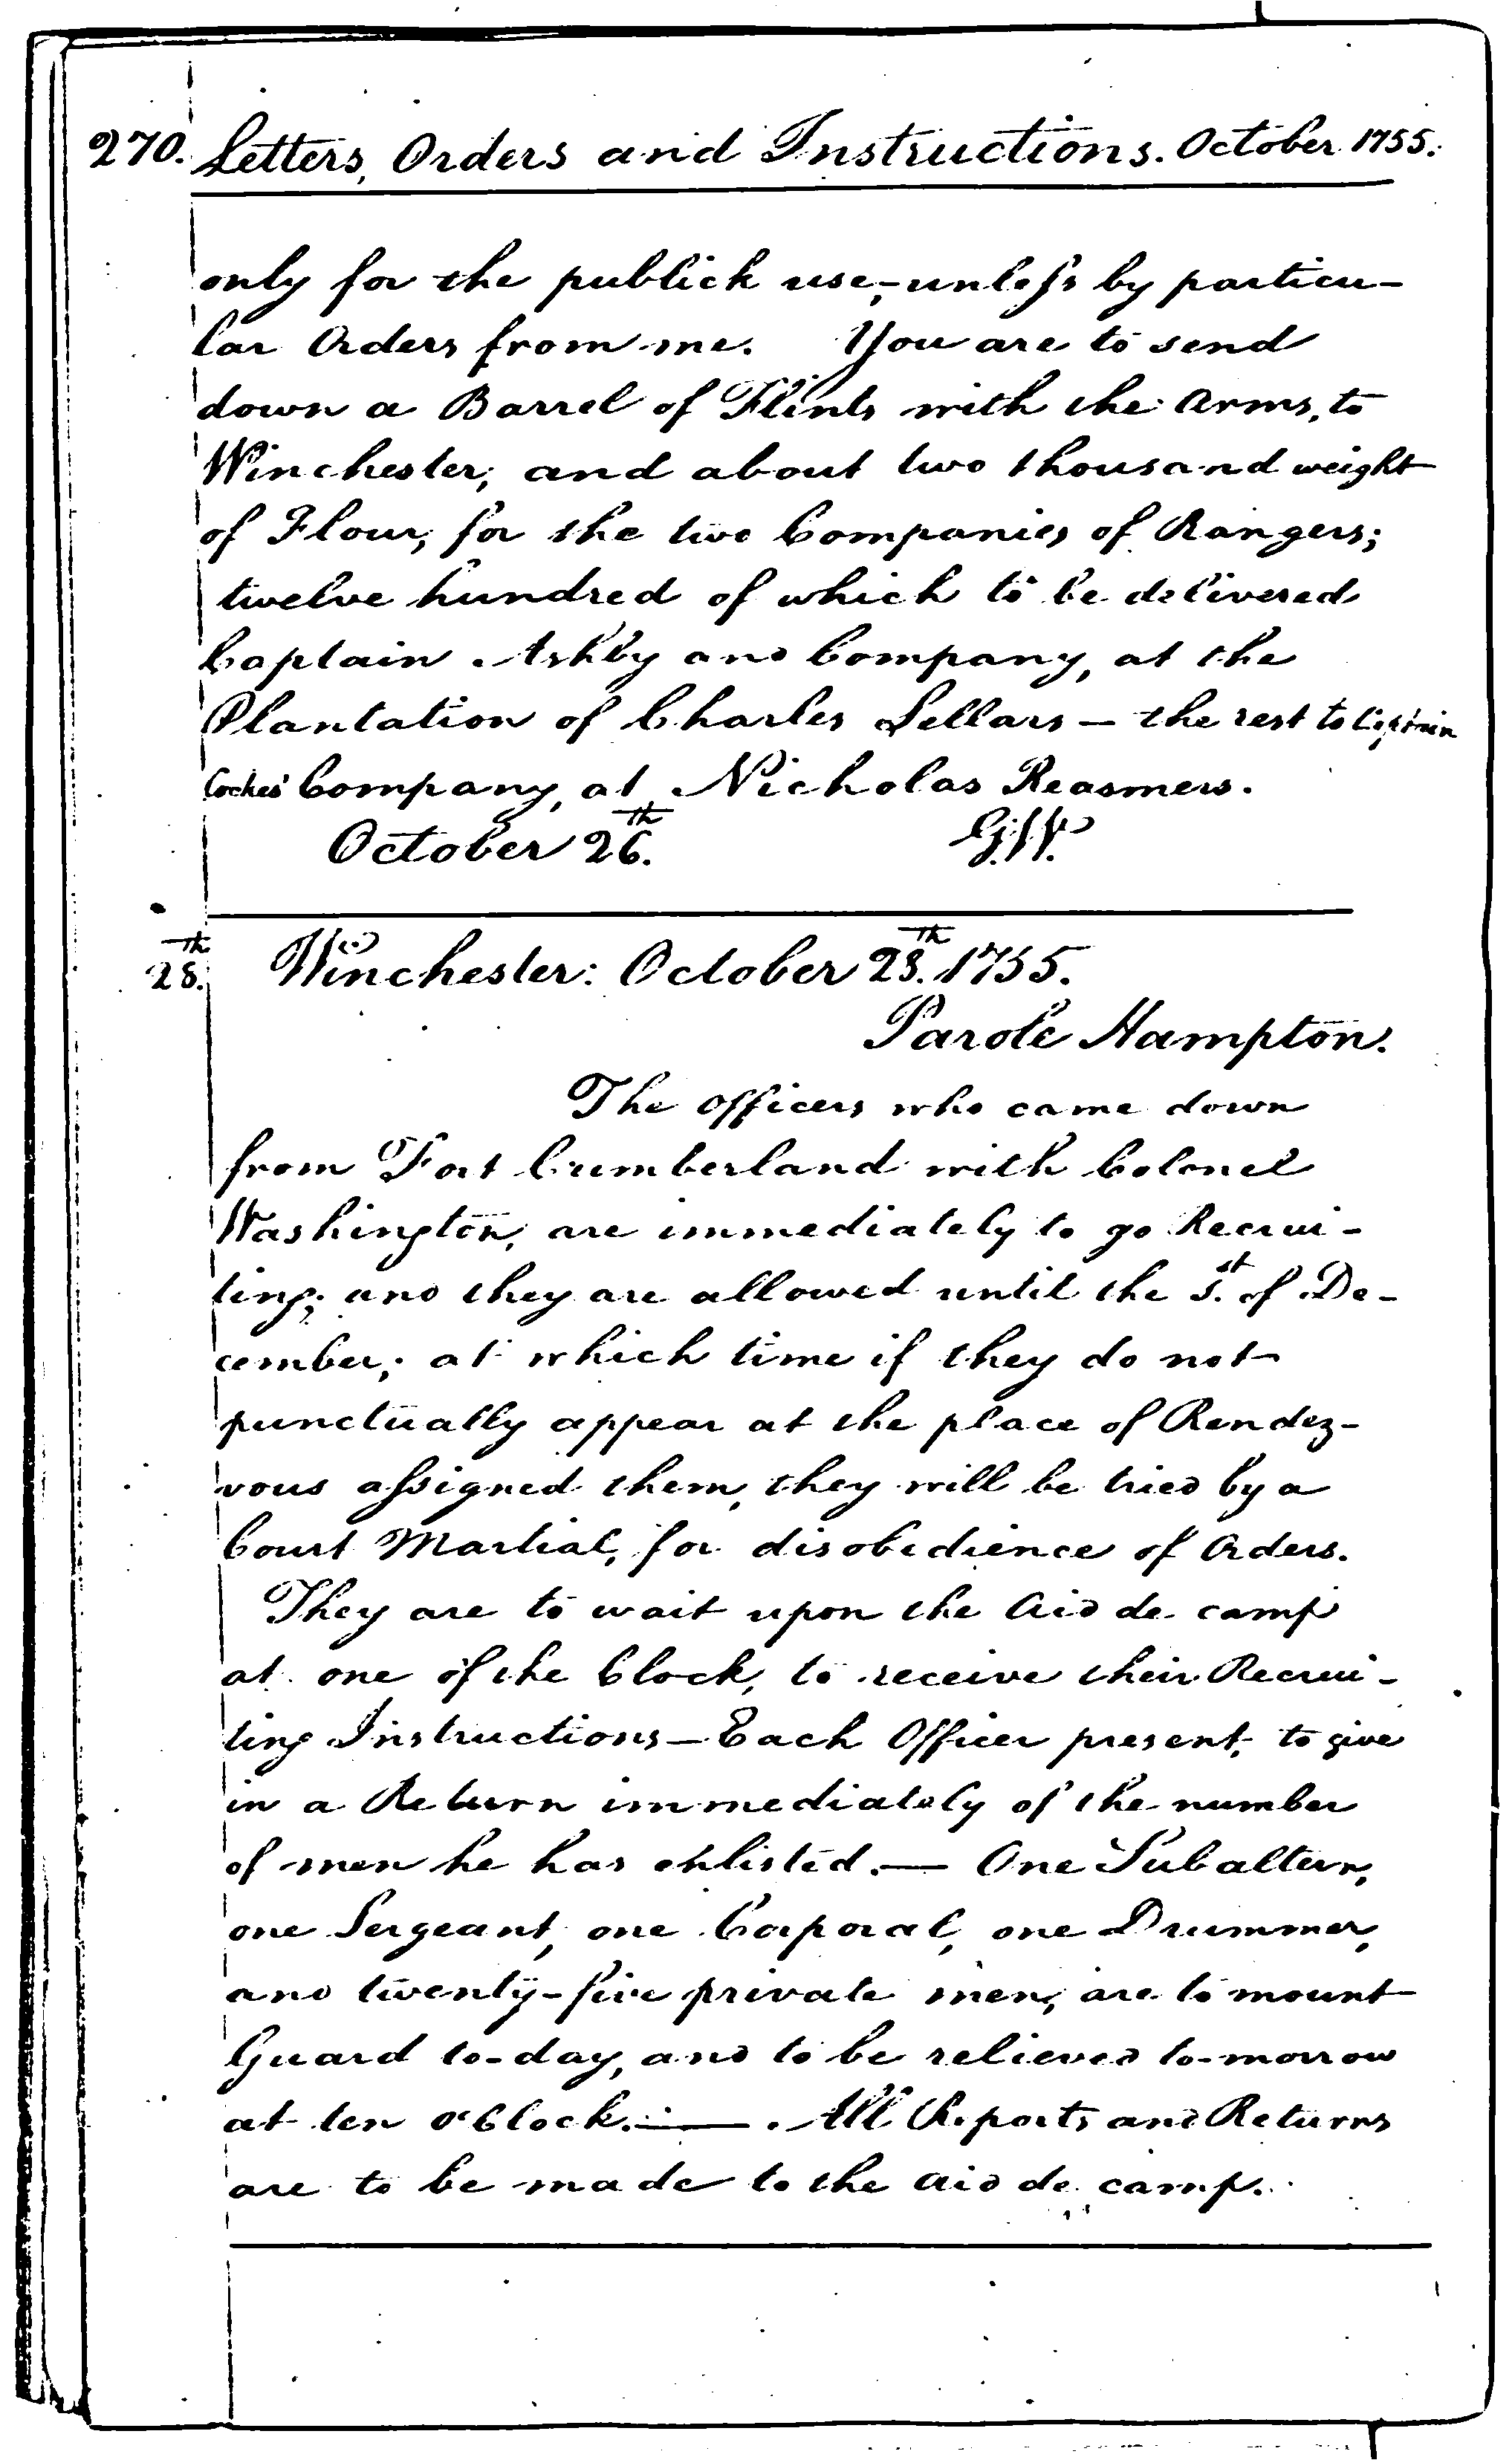 270. Letters, Orders and Instructions. October 1755.
only for the publick use,-unless by particu-
lar Orders from me. You are to send
down a Barrel of Flints with the Arms, to
Winchester, and about two thousand weight
of Flour, for the two Companies of Rangers;
twelve hundred of which to be delivered
Captain Ashby and Company, at the
Plantation of Charles Sellars - the rest to Captain
Cockes' Company, at Nicholas Reasmers.
October 26th. G:W.
28th. Winchester: October 28th. 1755.
Parole Hampton.
The Officers who came down
from Fort Cumberland with Colonel
Washington, are immediately to go Recrui-
ting; and they are allowed until the 1st. of De-
cember; at which time if they do not
punctually appear at the place of Rendez-
vous assigned them, they will be tried by a
Court Martial, for disobedience of Orders.
They are to wait upon the Aid de camp
at one of the Clock, to receive their Recrui-
ting Instructions - Each Officer present, to give
in a Return immediately of the number
of men he has enlisted. — One Subaltern,
one Sergeant, one Corporal, one Drummer,
and twenty-five private men, are to mount
Guard to-day, and to be relieved to-morrow
at ten o'Clock. — All Reports and Returns
are to be made to the Aid de camp.